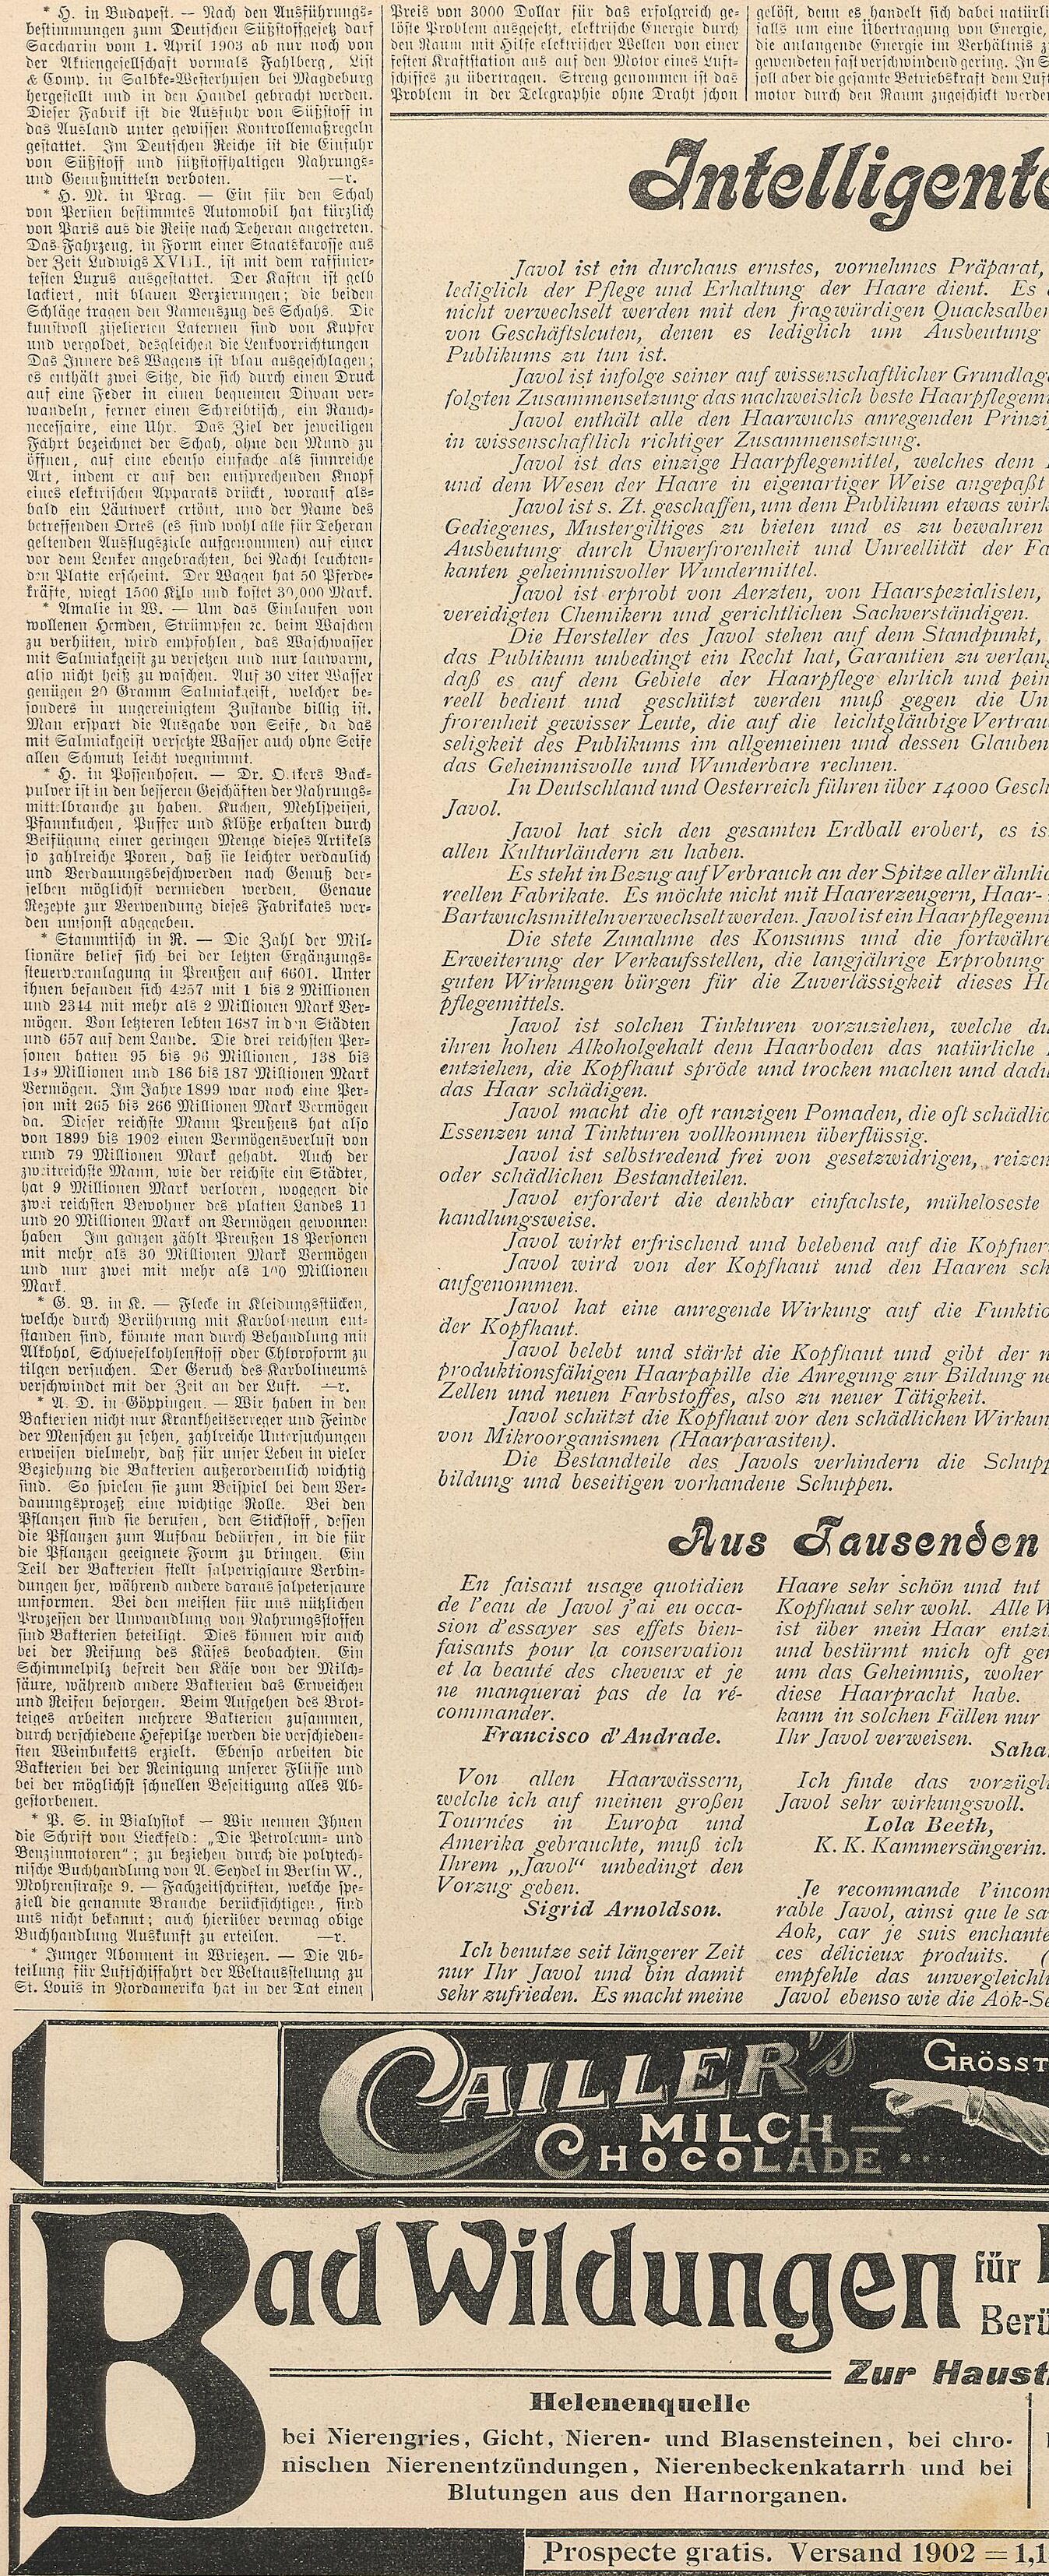 * H. in Budapest. — Nach den Ausführungs-
bestimmungen zum Deutschen Süßstoffgesetz darf
Saccharin vom 1. April 1903 ab nur noch von
der Aktiengesellschaft vormals Fahlberg, List
& Comp. in Salbke-Westerhusen bei Magdeburg
hergestellt und in den Handel gebracht werden.
Dieser Fabrik ist die Ausfuhr von Süßstoff in
das Ausland unter gewissen Kontrollemaßregeln
gestattet. Im Deutschen Reiche ist die Einfuhr
von Süßstoff und süßstoffhaltigen Nahrungs-
und Genußmitteln verboten. —r.
* H. M. in Prag. — Ein für den Schah
von Persien bestimmtes Automobil hat kürzlich
von Paris aus die Reise nach Teheran angetreten.
Das Fahrzeug, in Form einer Staatskarosse aus
der Zeit Ludwigs XVIII., ist mit dem raffinier-
testen Luxus ausgestattet. Der Kasten ist gelb
lackiert, mit blauen Verzierungen; die beiden
Schläge tragen den Namenszug des Schahs. Die
kunstvoll ziselierten Laternen sind von Kupfer
und vergoldet, desgleichen die Lenkvorrichtungen
Das Innere des Wagens ist blau ausgeschlagen;
es enthält zwei Sitze, die sich durch einen Druck
auf eine Feder in einen bequemen Diwan ver-
wandeln, ferner einen Schreibtisch, ein Rauch-
necessaire, eine Uhr. Das Ziel der jeweiligen
Fahrt bezeichnet der Schah, ohne den Mund zu
öffnen, auf eine ebenso einfache als sinnreiche
Art, indem er auf den entsprechenden Knopf
eines elektrischen Apparats drückt, worauf als-
bald ein Läutwerk ertönt, und der Name des
betreffenden Ortes (es sind wohl alle für Teheran
geltenden Ausflugsziele aufgenommen) auf einer
vor dem Lenker angebrachten, bei Nacht leuchten-
den Platte erscheint. Der Wagen hat 50 Pferde-
kräfte, wiegt 1500 Kilo und kostet 30,000 Mark.
* Amalie in W. — Um das Einlaufen von
wollenen Hemden, Strümpfen ꝛc. beim Waschen
zu verhüten, wird empfohlen, das Waschwasser
mit Salmiakgeist zu versetzen und nur lauwarm,
also nicht heiß zu waschen. Auf 30 Liter Wasser
genügen 20 Gramm Salmiakgeist, welcher be-
sonders in ungereinigtem Zustande billig ist.
Man erspart die Ausgabe von Seife, da das
mit Salmiakgeist versetzte Wasser auch ohne Seife
allen Schmutz leicht wegnimmt.
* H. in Possenhofen. — Dr. Oetkers Back-
pulver ist in den besseren Geschäften der Nahrungs-
mittelbranche zu haben. Kuchen, Mehlspeisen,
Pfannkuchen, Puffer und Klöße erhalten durch
Beifügung einer geringen Menge dieses Artikels
so zahlreiche Poren, daß sie leichter verdaulich
und Verdauungsbeschwerden nach Genuß der-
selben möglichst vermieden werden. Genaue
Rezepte zur Verwendung dieses Fabrikates wer-
den umsonst abgegeben.
* Stammtisch in R. — Die Zahl der Mil-
lionäre belief sich bei der letzten Ergänzungs-
steuerveranlagung in Preußen auf 6601. Unter
ihnen befanden sich 4257 mit 1 bis 2 Millionen
und 2344 mit mehr als 2 Millionen Mark Ver-
mögen. Von letzteren lebten 1687 in den Städten
und 657 auf dem Lande. Die drei reichsten Per-
sonen hatten 95 bis 96 Millionen, 138 bis
139 Millionen und 186 bis 187 Millionen Mark
Vermögen. Im Jahre 1899 war noch eine Per-
son mit 265 bis 266 Millionen Mark Vermögen
da. Dieser reichste Mann Preußens hat also
von 1899 bis 1902 einen Vermögensverlust von
rund 79 Millionen Mark gehabt. Auch der
zweitreichste Mann, wie der reichste ein Städter,
hat 9 Millionen Mark verloren, wogegen die
zwei reichsten Bewohner des platten Landes 11
und 20 Millionen Mark an Vermögen gewonnen
haben Im ganzen zählt Preußen 18 Personen
mit mehr als 30 Millionen Mark Vermögen
und nur zwei mit mehr als 100 Millionen
Mark.
* G. B. in K. — Flecke in Kleidungsstücken,
welche durch Berührung mit Karbolineum ent-
standen sind, könnte man durch Behandlung mit
Alkohol, Schwefelkohlenstoff oder Chloroform zu
tilgen versuchen. Der Geruch des Karbolineums
verschwindet mit der Zeit an der Luft. —r.
* A. D. in Göppingen. — Wir haben in den
Bakterien nicht nur Krankheitserreger und Feinde
der Menschen zu sehen, zahlreiche Untersuchungen
erweisen vielmehr, daß für unser Leben in vieler
Beziehung die Bakterien außerordentlich wichtig
sind. So spielen sie zum Beispiel bei dem Ver-
dauungsprozeß eine wichtige Rolle. Bei den
Pflanzen sind sie berufen, den Stickstoff, dessen
die Pflanzen zum Aufbau bedürfen, in die für
die Pflanzen geeignete Form zu bringen. Ein
Teil der Bakterien stellt salpetrigsaure Verbin-
dungen her, während andere daraus salpetersaure
umformen. Bei den meisten für uns nützlichen
Prozessen der Umwandlung von Nahrungsstoffen
sind Bakterien beteiligt. Dies können wir auch
bei der Reifung des Käses beobachten. Ein
Schimmelpilz befreit den Käse von der Milch-
säure, während andere Bakterien das Erweichen
und Reifen besorgen. Beim Aufgehen des Brot-
teiges arbeiten mehrere Bakterien zusammen,
durch verschiedene Hefepilze werden die verschieden-
sten Weinbuketts erzielt. Ebenso arbeiten die
Bakterien bei der Reinigung unserer Flüsse und
bei der möglichst schnellen Beseitigung alles Ab-
gestorbenen.
* P. S. in Bialystok — Wir nennen Ihnen
die Schrift von Lieckfeld: „Die Petroleum- und
Benzinmotoren"; zu beziehen durch die polytech-
nische Buchhandlung von A. Seydel in Berlin W.,
Mohrenstraße 9. — Fachzeitschriften, welche spe-
ziell die genannte Branche berücksichtigen, sind
uns nicht bekannt; auch hierüber vermag obige
Buchhandlung Auskunft zu erteilen. —r.
* Junger Abonnent in Wriezen. — Die Ab-
teilung für Luftschiffahrt der Weltausstellung zu
St. Louis in Nordamerika hat in der Tat einen
Preis von 3000 Dollar für das erfolgreich ge-
löste Problem ausgesetzt, elektrische Energie durch
den Raum mit Hilfe elektrischer Wellen von einer
festen Kraftstation aus auf den Motor eines Luft-
schiffes zu übertragen. Streng genommen ist das
Problem in der Telegraphie ohne Draht schon
gelöst, denn es handelt sich dabei natürli
falls um eine Übertragung von Energie,
die anlangende Energie im Verhältnis z
gewendeten fast verschwindend gering. In S
soll aber die gesamte Betriebskraft dem Luft
motor durch den Raum zugeschickt werde
Intelligente
Javol ist ein durchaus ernstes, vornehmes Präparat,
lediglich der Pflege und Erhaltung der Haare dient. Es
nicht verwechselt werden mit den fragwürdigen Quacksalber
von Geschäftsleuten, denen es lediglich um Ausbeutung
Publikums zu tun ist.
Javol ist infolge seiner auf wissenschaftlicher Grundlag
folgten Zusammensetzung das nachweislich beste Haarpflegemi
Javol enthält alle den Haarwuchs anregenden Prinzi
in wissenschaftlich richtiger Zusammensetzung.
Javol ist das einzige Haarpflegemittel, welches dem
und dem Wesen der Haare in eigenartiger Weise angepaßt
Javol ist s. Zt. geschaffen, um dem Publikum etwas wirk
Gediegenes, Mustergiltiges zu bieten und es zu bewahren
Ausbeutung durch Unverfrorenheit und Unreellität der Fa
kanten geheimnisvoller Wundermittel.
Javol ist erprobt von Aerzten, von Haarspezialisten,
vereidigten Chemikern und gerichtlichen Sachverständigen.
Die Hersteller des Javol stehen auf dem Standpunkt,
das Publikum unbedingt ein Recht hat, Garantien zu verlang
daß es auf dem Gebiete der Haarpflege ehrlich und pein
reell bedient und geschützt werden muß gegen die Un
frorenheit gewisser Leute, die auf die leichtgläubige Vertrau
seligkeit des Publikums im allgemeinen und dessen Glauben
das Geheimnisvolle und Wunderbare rechnen.
In Deutschland und Oesterreich führen über 14000 Gesch
Javol.
Javol hat sich den gesamten Erdball erobert, es is
allen Kulturländern zu haben.
Es steht in Bezug auf Verbrauch an der Spitze aller ähnlic
reellen Fabrikate. Es möchte nicht mit Haarerzeugern, Haar-
Bartwuchsmitteln verwechselt werden. Javol ist ein Haarpflegemi
Die stete Zunahme des Konsums und die fortwähre
Erweiterung der Verkaufsstellen, die langjährige Erprobung
guten Wirkungen bürgen für die Zuverlässigkeit dieses Ha
pflegemittels.
Javol ist solchen Tinkturen vorzuziehen, welche du
ihren hohen Alkoholgehalt dem Haarboden das natürliche
entziehen, die Kopfhaut spröde und trocken machen und dadu
das Haar schädigen.
Javol macht die oft ranzigen Pomaden, die oft schädlic
Essenzen und Tinkturen vollkommen überflüssig.
Javol ist selbstredend frei von gesetzwidrigen, reizen
oder schädlichen Bestandteilen.
Javol erfordert die denkbar einfachste, müheloseste
handlungsweise.
Javol wirkt erfrischend und belebend auf die Kopfner
Javol wird von der Kopfhaut und den Haaren sch
aufgenommen.
Javol hat eine anregende Wirkung auf die Funktio
der Kopfhaut.
Javol belebt und stärkt die Kopfhaut und gibt der n
produktionsfähigen Haarpapille die Anregung zur Bildung ne
Zellen und neuen Farbstoffes, also zu neuer Tätigkeit.
Javol schützt die Kopfhaut vor den schädlichen Wirkun
von Mikroorganismen (Haarparasiten).
Die Bestandteile des Javols verhindern die Schupp
bildung und beseitigen vorhandene Schuppen.
Aus Tausenden
En faisant usage quotidien
de l'eau de Javol j'ai eu occa-
sion d'essayer ses effets bien-
faisants pour la conservation
et la beauté des cheveux et je
ne manquerai pas de la ré-
commander.
Francisco d'Andrade.
Von allen Haarwässern,
welche ich auf meinen großen
Tournées in Europa und
Amerika gebrauchte, muß ich
Ihrem „Javol" unbedingt den
Vorzug geben.
Sigrid Arnoldson.
Ich benutze seit längerer Zeit
nur Ihr Javol und bin damit
sehr zufrieden. Es macht meine
Haare sehr schön und tut
Kopfhaut sehr wohl. Alle W
ist über mein Haar entzü
und bestürmt mich oft ge
um das Geheimnis, woher
diese Haarpracht habe.
kann in solchen Fällen nur
Ihr Javol verweisen.
Saha
Ich finde das vorzügli
Javol sehr wirkungsvoll.
Lola Beeth,
K. K. Kammersängerin.
Je recommande l'incom
rable Javol, ainsi que le sa
Aok, car je suis enchanté
ces délicieux produits. (
empfehle das unvergleichli
Javol ebenso wie die Aok-Se
CAILLER'S
MILCH
CHOCOLADE
GRÖSST
Bad Wildungen für
Berü
Zur Haust
Helenenquelle
bei Nierengries, Gicht, Nieren- und Blasensteinen, bei chro-
nischen Nierenentzündungen, Nierenbeckenkatarrh und bei
Blutungen aus den Harnorganen.
Prospecte gratis. Versand 1902 = 1,1